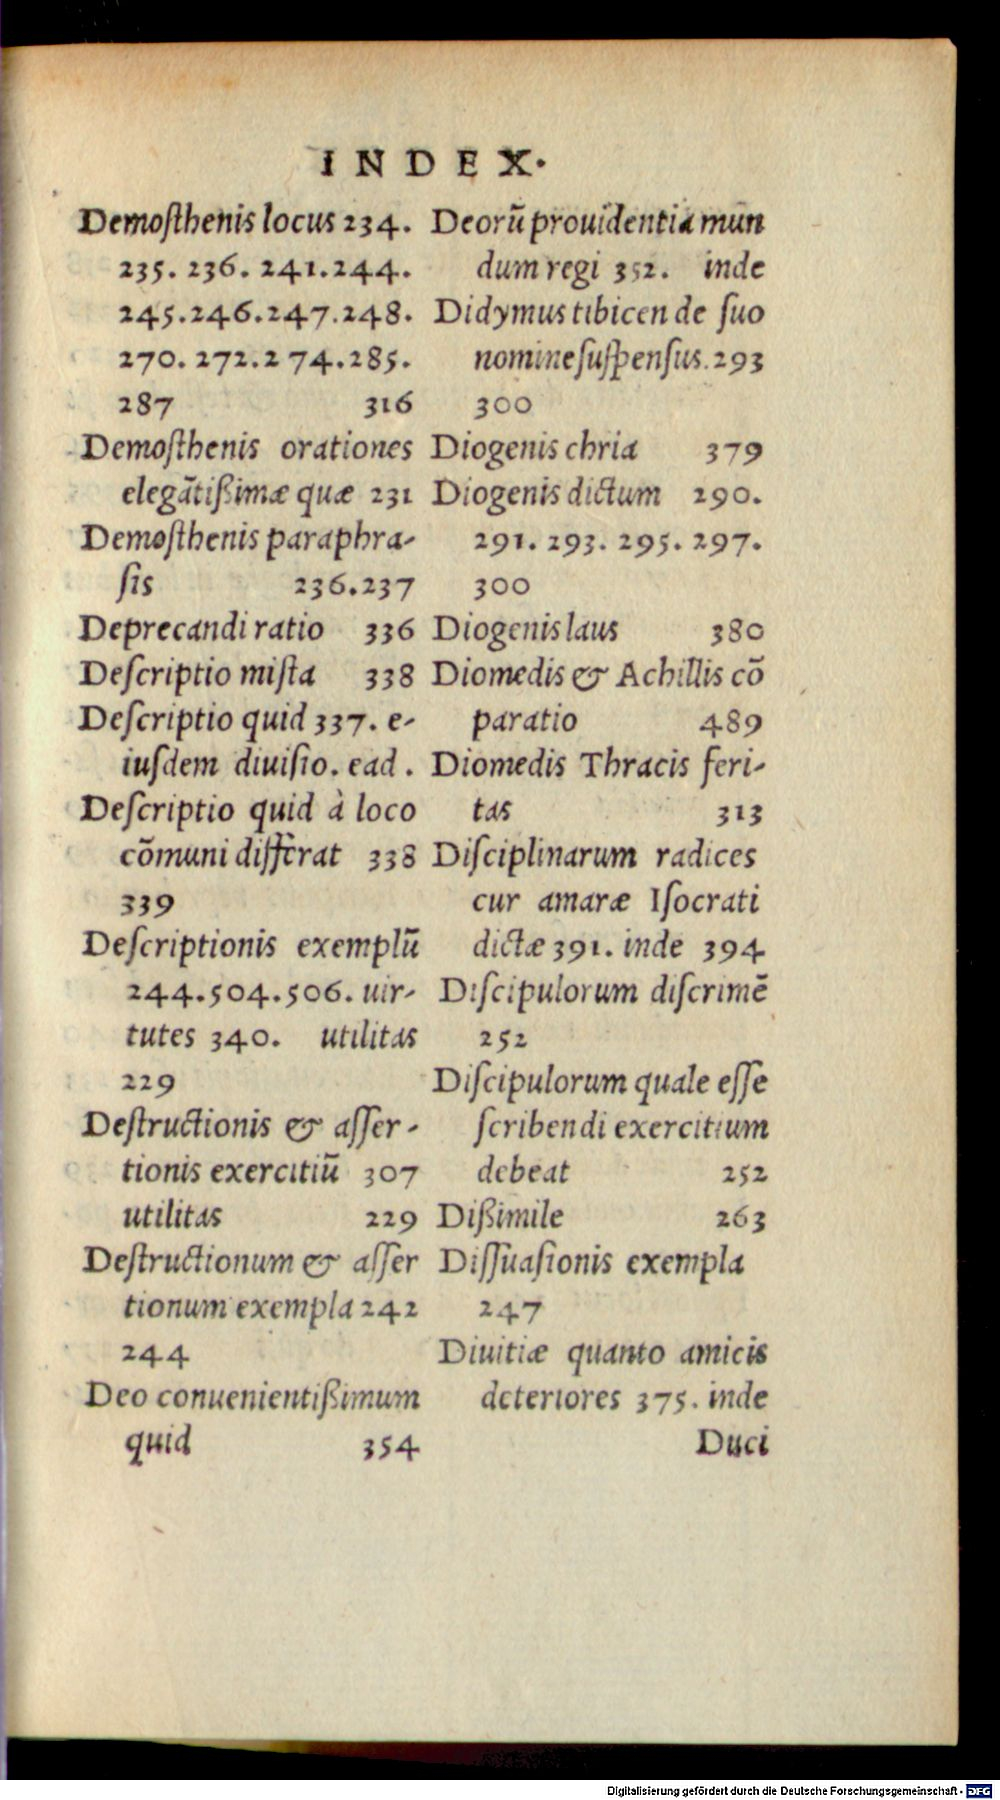 INDEX.
Demosthenis locus 234.
235. 236. 241. 244.
245. 246. 247. 248.
270. 272. 274. 285.
287 316
Demosthenis orationes
elegãtißimæ quæ 231
Demosthenis paraphra-
sis 236. 237
Deprecandi ratio 336
Descriptio mista 338
Descriptio quid 337. e-
iusdem diuisio. ead.
Descriptio quid à loco
cõmuni differat 338
339
Descriptionis exemplũ
244. 504. 506. uir-
tutes 340. utilitas
229
Destructionis & asser-
tionis exercitiũ 307
utilitas 229
Destructionum & asser
tionum exempla 242
244
Deo conuenientißimum
quid 354
Deorũ prouidentia mun
dum regi 352. inde
Didymus tibicen de suo
nomine suspensus. 293
300
Diogenis chria 379
Diogenis dictum 290.
291. 293. 295. 297.
300
Diogenis laus 380
Diomedis & Achillis cõ
paratio 489
Diomedis Thracis feri-
tas 313
Disciplinarum radices
cur amaræ Isocrati
dictæ 391. inde 394
Discipulorum discrimẽ
252
Discipulorum quale esse
scribendi exercitium
debeat 252
Dißimile 263
Dissuasionis exempla
247
Diuitiæ quanto amicis
deteriores 375. inde
Duci
Digitalisierung gefördert durch die Deutsche Forschungsgemeinschaft - DFG